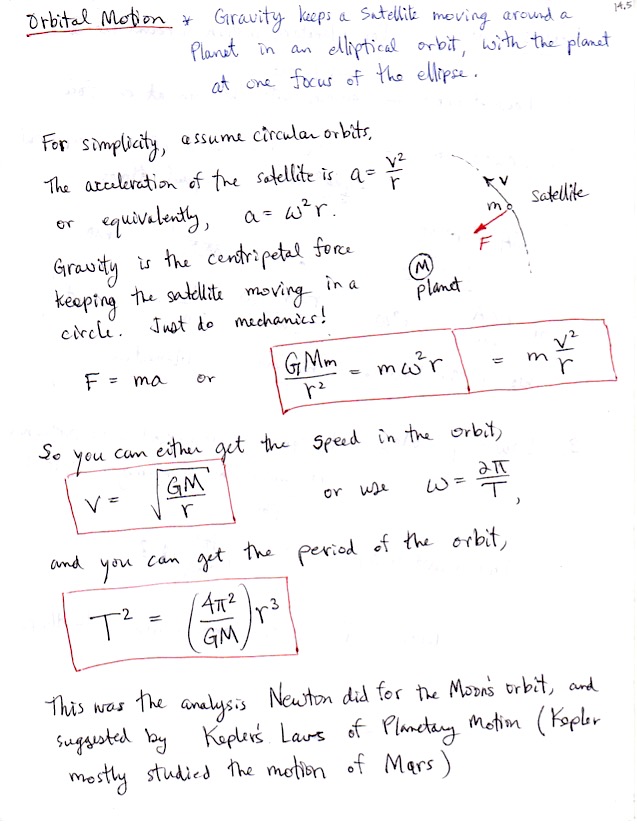 14.5
Orbital Motion * Gravity keeps a satellite moving around a
Planet in an elliptical orbit, with the planet
at one focus of the ellipse.
For simplicity, assume circular orbits,
The acceleration of the satellite is a = v²/r
or equivalently, a = ω²r.
V
m
Satellite
F
M
planet
Gravity is the centripetal force
keeping the satellite moving in a
circle. Just do mechanics!
F = ma or GMm/r² = mω²r = m v²/r
So you can either get the speed in the orbit,
V = √(GM/r) or use ω = 2π/T,
and you can get the period of the orbit,
T² = (4π²/GM) r³
This was the analysis Newton did for the Moon's orbit, and
suggested by Kepler's Laws of Planetary Motion (Kepler
mostly studied the motion of Mars)